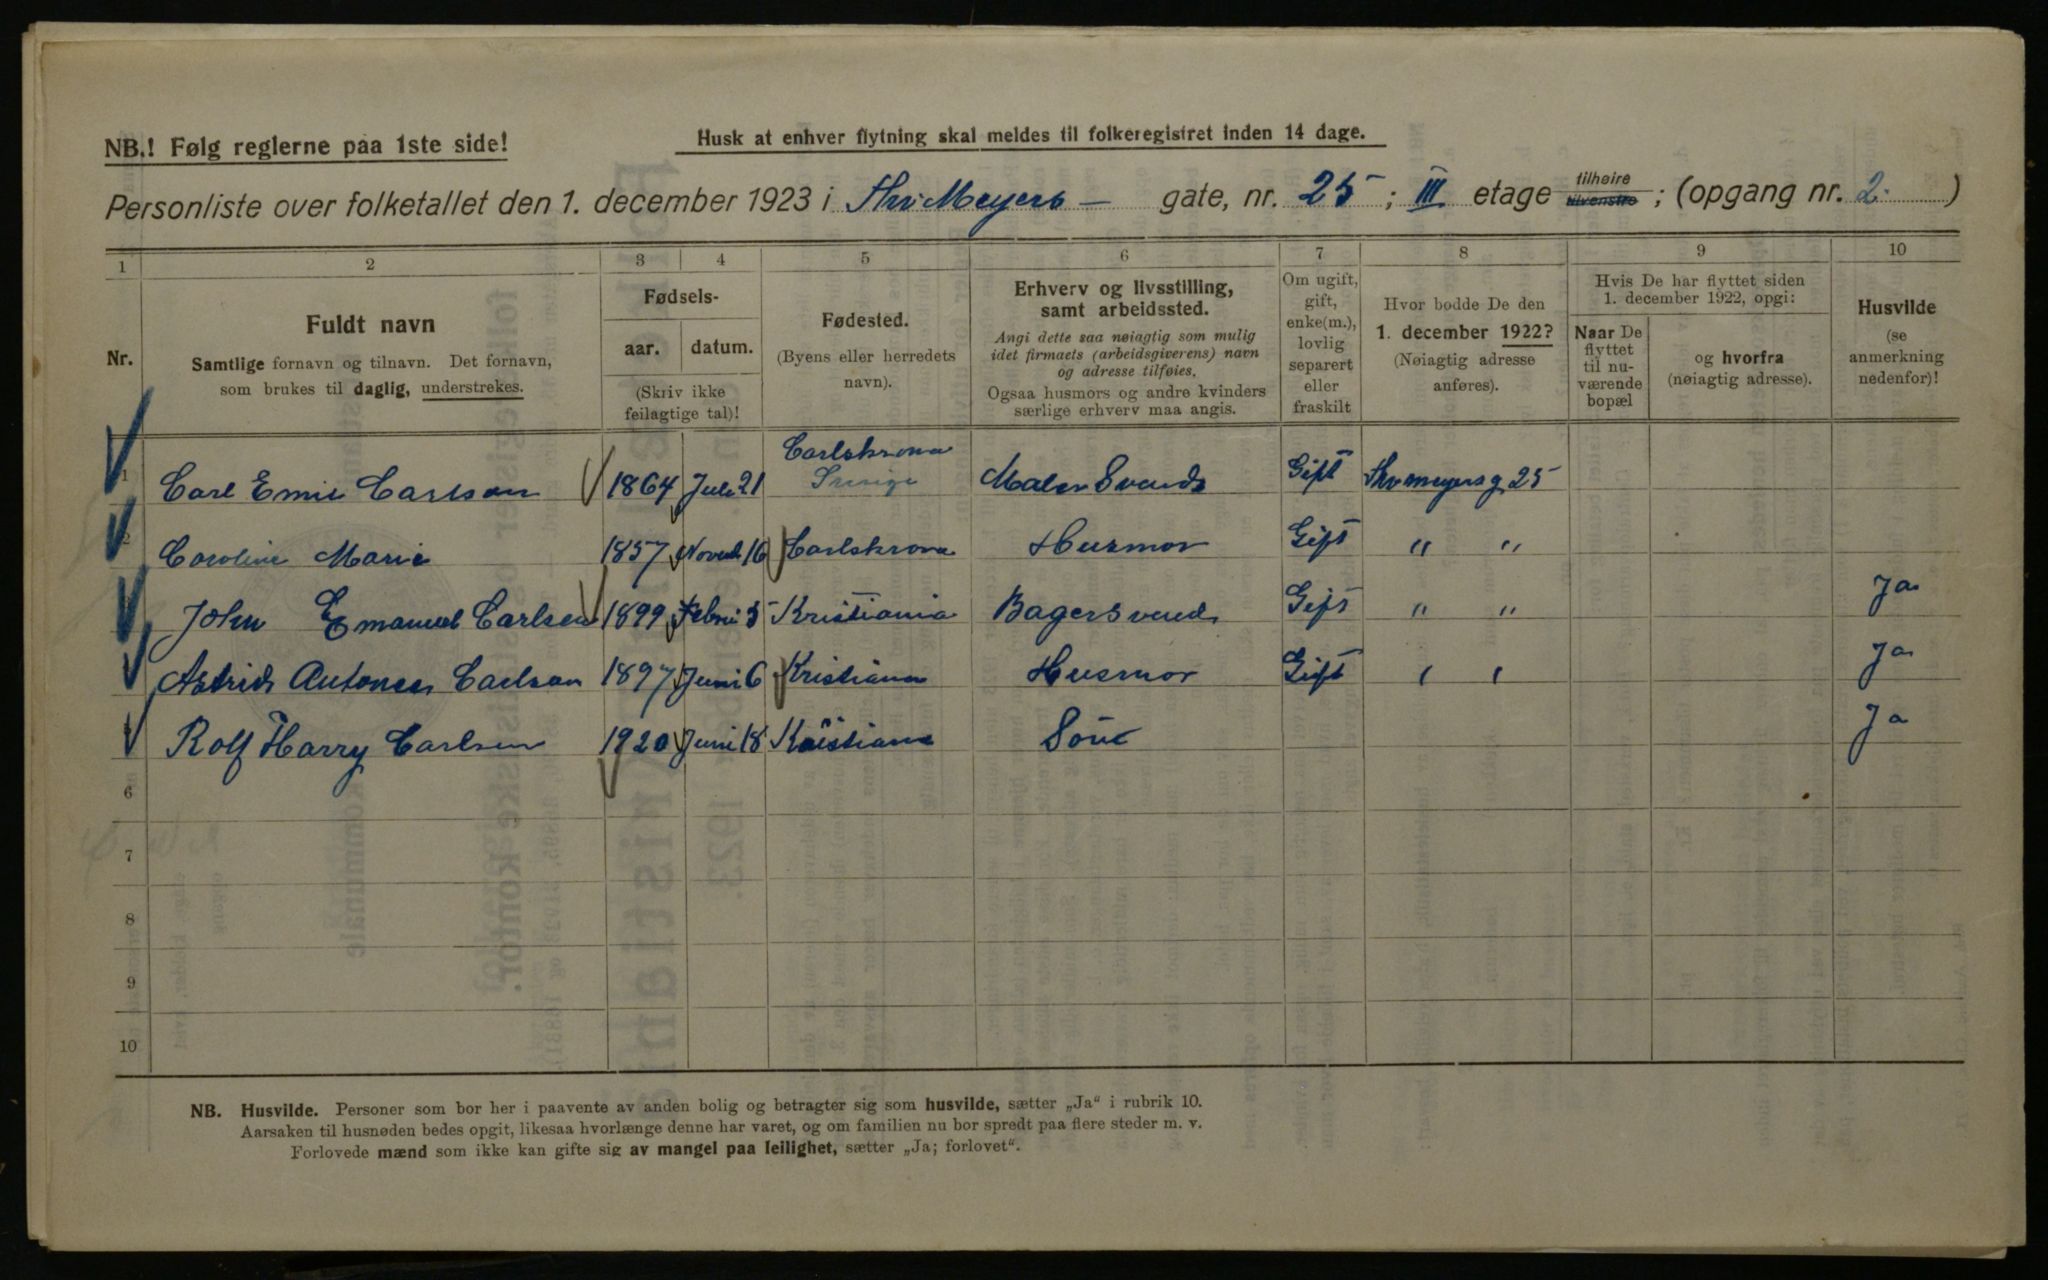 NB.! Følg reglerne paa 1ste side!
Husk at enhver flytning skal meldes til folkeregistret inden 14 dage.
Personliste over folketallet den 1. december 1923 i Thv. Meyers — gate, nr. 25 ; III etage tilhøire tilvenstre ; (opgang nr. 2. )
1 2 3 4 5 6 7 8 9 10
Nr.
Fuldt navn
Samtlige fornavn og tilnavn. Det fornavn,
som brukes til daglig, understrekes.
Fødsels-
aar. datum.
(Skriv ikke
feilagtige tal)!
Fødested.
(Byens eller herredets
navn).
Erhverv og livsstilling,
samt arbeidssted.
Angi dette saa nøiagtig som mulig
idet firmaets (arbeidsgiverens) navn
og adresse tilføies.
Ogsaa husmors og andre kvinders
særlige erhverv maa angis.
Om ugift,
gift,
enke(m.),
lovlig
separert
eller
fraskilt
Hvor bodde De den
1. december 1922?
(Nøiagtig adresse
anføres).
Hvis De har flyttet siden
1. december 1922, opgi:
Naar De
flyttet
til nu-
værende
bopæl
og hvorfra
(nøiagtig adresse).
Husvilde
(se
anmerkning
nedenfor)!
1 Carl Emil Carlson 1864 Juli 21 Carlskrona Sverige Maler Svends Gift Thv meyers g 25
2 Caroline Marie 1857 Novemb 16 Carlskrona Husmor Gift " "
John Emanuel Carlsen 1899 Febru 5 Kristiania Bagersvend Gift " " Ja
Astrid Antonsen Carlson 1897 Juni 6 Kristiana Husmor Gift " " Ja
Rolf Harry Carlsen 1920 Juni 18 Kristiana Sönn Ja
6
7
8
9
10
NB. Husvilde. Personer som bor her i paavente av anden bolig og betragter sig som husvilde, sætter „Ja“ i rubrik 10.
Aarsaken til husnøden bedes opgit, likesaa hvorlænge denne har varet, og om familien nu bor spredt paa flere steder m. v.
Forlovede mænd som ikke kan gifte sig av mangel paa leilighet, sætter „Ja; forlovet“.